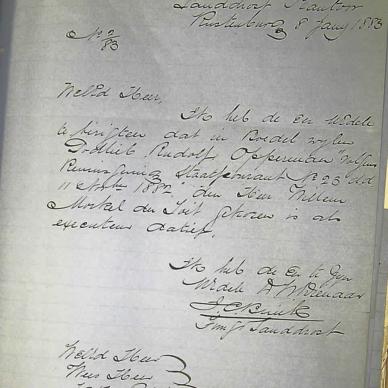 Landdrost Kantoor
Rustenburg 8 Jany 1883
No 2/83
WelEd Heer,
Ik heb de Eer UEdele
te berigten dat in Boedel wylen
Gottlieb Rudolf Opperman volgens
Kennisgeving Staatscourant No 23 dd
11 1882 den Heer Willem
Morkel du Toit gekozen is als
executeur datief.
Ik heb de Eer te zyn
UEdele Dw Dienaar
Fung Landdrost
WelEd Heer
Wees Heer